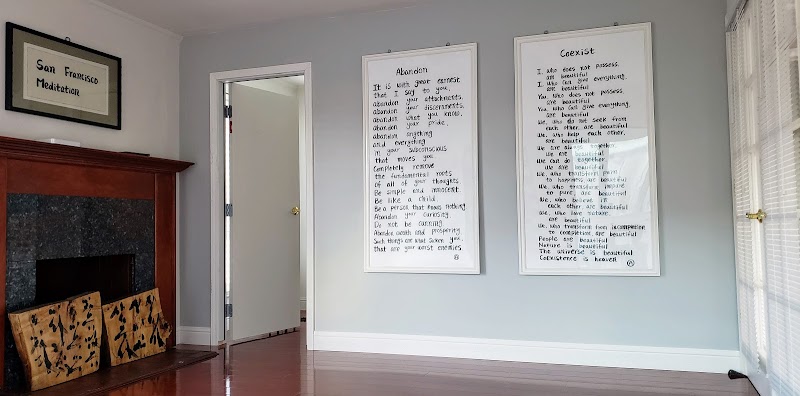 San Francisco
Meditation
Abandon
It is with great earnest
that I say to you,
abandon your attachments.
abandon your discernments.
abandon what you know,
abandon your pride.
abandon anything
and everything
in your subconscious
that moves you.
Completely remove
the fundamental roots
of all of your thoughts
Be simple and innocent.
Be like a child.
Be a person that knows nothing
Abandon your curiosity.
Do not be cunning.
Abandon wealth and prosperity
Such things are what sicken you,
that are your worst enemies.
Coexist
I, who does not possess,
am beautiful
I, who can give everything,
am beautiful
You, who does not possess,
are beautiful
You, who can give everything,
are beautiful
We, who do not seek from
each other, are beautiful
We, who help each other,
are beautiful
We are always together,
we are beautiful
We can do together
We are beautiful
We, who transform pain
to happiness are beautiful
We, who transform impure
to pure, are beautiful
We, who believe in
each other, are beautiful
We, who love nature,
are beautiful
We, who transform from incompletion
to completion, are beautiful
People are beautiful
Nature is beautiful
The universe is beautiful
Coexistence is heaven